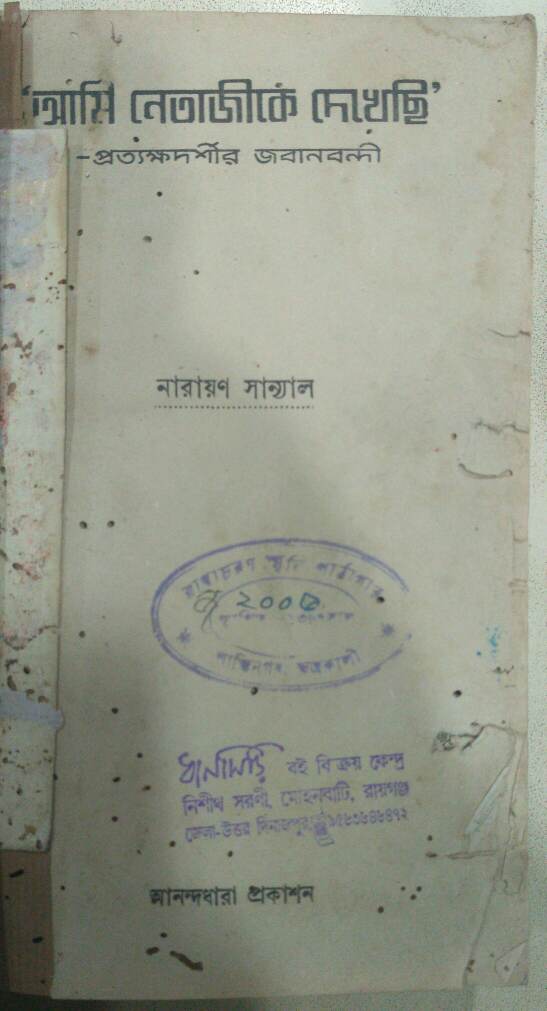 'আমি নেতাজীকে দেখেছি'
-প্রত্যক্ষদর্শীর জবানবন্দী
নারায়ণ সান্যাল
পাঠাগার
২০০৫
শান্তিনগর, ভদ্রকালী
বই বিক্রয় কেন্দ্র
নিশীথ সরণী, মোহনবাটি, রায়গঞ্জ
জেলা-উত্তর দিনাজপুর
আনন্দধারা প্রকাশন